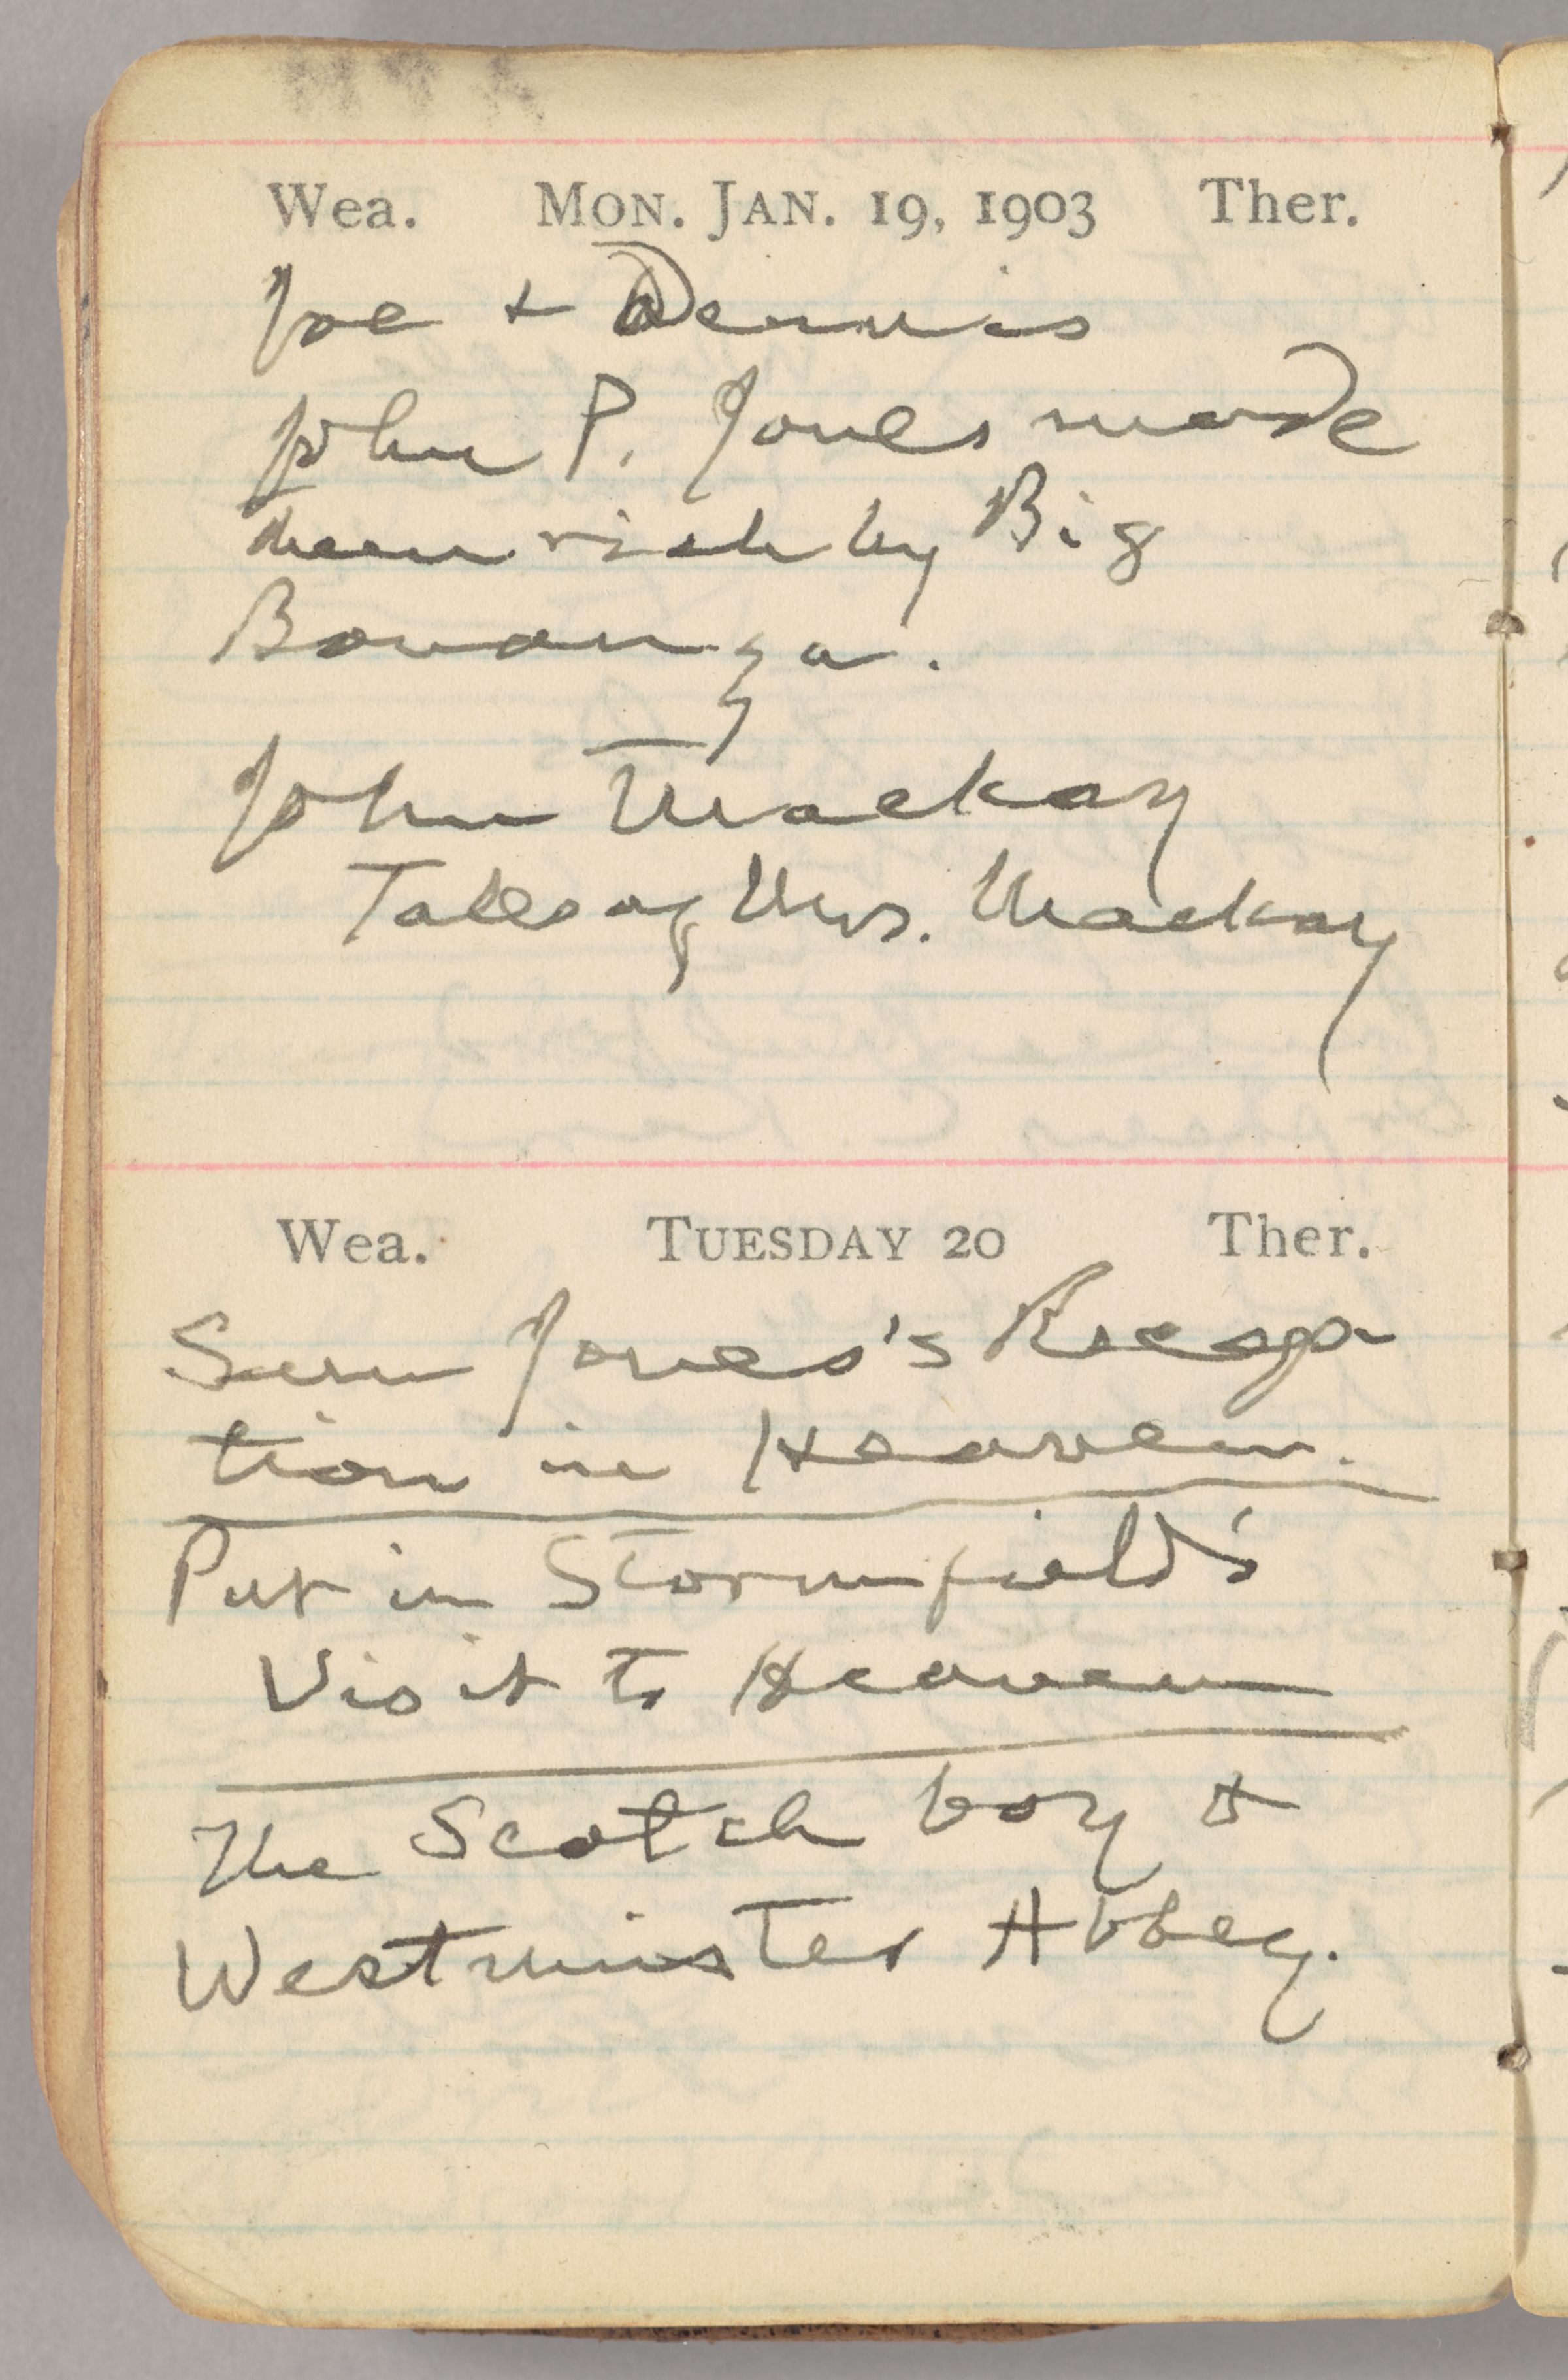 Wea. MON. JAN. 19, 1903 Ther.
Joe & Dennis
John P. Jones made
them rich by Big
Bonanza.
John Mackay
Tales of Mrs. Mackay
Wea. TUESDAY 20 Ther.
Sam Jones's Recep-
tion in Heaven.
Put in Stormfield's
Visit to Heaven
The Scotch boy &
Westminster Abbey.